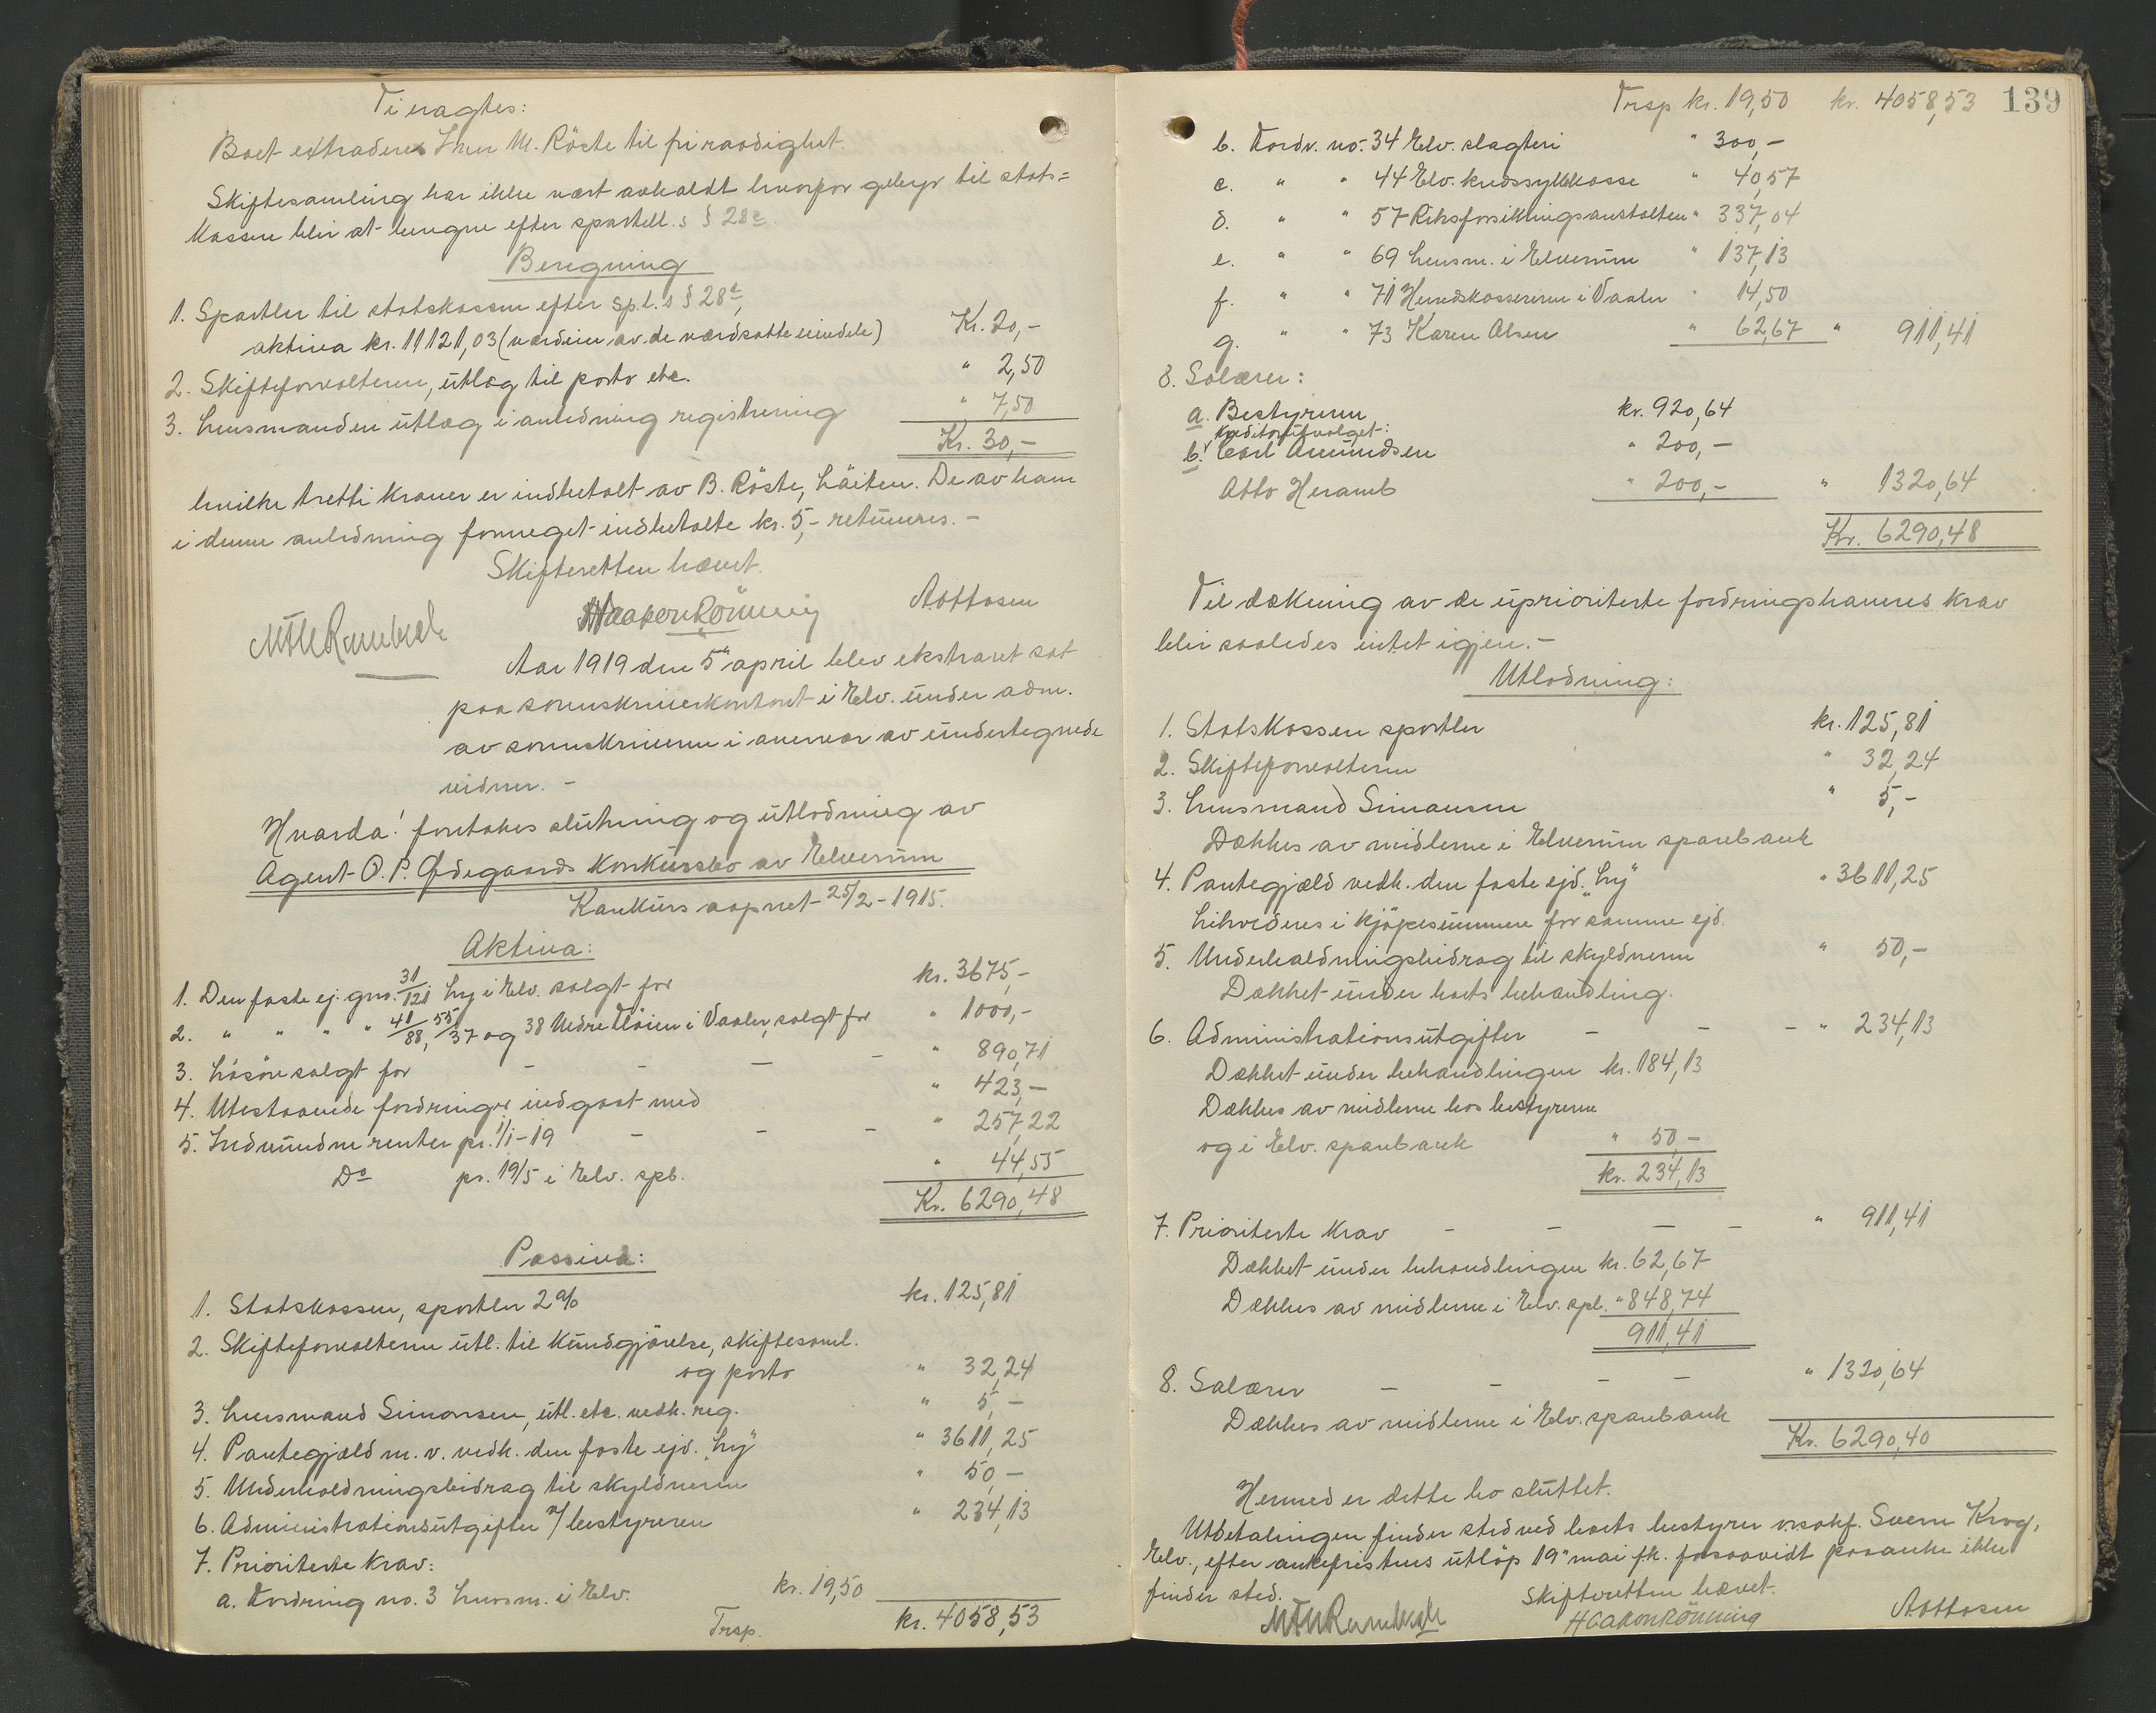 Ti eragtes:
Boet extraderes Iver M. Röste til fri raadighet.
Skiftesamling har ikke vært avholdt hvorfor gebyr til stats=
kassen blir at beregne efter sportell. s § 28 e.
Beregning
1. Sportler til statskassen efter sp.l. s § 28 e,
aktiva kr. 11121,03 (værdien av de værdsatte eiendele) Kr. 20,-
2. Skifteforvalteren, utlæg til porto etc. " 2,50
3. Lensmanden utlæg i anledning registrering " 7,50
Kr. 30,-
hvilke tretti kroner er indbetalt av B. Röste, Löiten. De av ham
i denne anledning formeget indbetalte kr. 5,- returneres. -
Skifteretten hævet.
Haakon Rönning AOttosen
Aar 1919 den 5te april blev ekstraret sat
paa sorenskriverkontoret i Elv. under adm.
av sorenskriveren i nærvær av undertegnede
vidner. -
Hvorda! foretokes slutning og utlodning av
Agent O. P. Ødegaards konkursbo av Elverum
Konkurs aapnet 25/2 - 1915.
Aktiva:
1. Den faste ej. gno. 31/121 Ly i Elv. solgt for kr. 3675,-
2. " " " " 41/88, 55/37 og 38 Nedre Flöien i Vaaler, solgt for " 1000,-
3. Lösöre solgt for - - - - " 890,71
4. Utestaaende fordringer indgaat med " 423,-
5. Indvundne renter pr. 1/1-19 - - - " 257,22
Do pr. 19/5 i Elv. spb. " 44,55
Kr. 6290,48
Passiva:
1. Statskassen, sportler 2% kr. 125,81
2. Skifteforvalteren utl. til kundgjörelse, skiftesaml.
og porto " 32,24
3. Lensmand Simonsen, utl. etc. vedk. reg. " 5,-
4. Pantegjæld m. v. vedk. den faste ejd. "Ly" " 3611,25
5. Underholdningsbidrag til skyldneren " 50,-
6. Administrationsutgifter v/ bestyreren " 234,13
7. Prioriterte krav:
a. Fordring no. 3 Lensm. i Elv. kr. 19,50
Trsp. kr. 4058,53
Trsp kr. 19,50 kr. 4058,53 139
b. Fordr. no. 34 Elv. slagteri " 300,-
c. " " 44 Elv. kredssykekasse " 40,57
d. " " 57 Riksforsikringsanstalten " 337,04
e. " " 69 Lensm. i Elverum " 137,13
f. " " 71 Herredskassereren i Vaaler " 14,50
g. " " 73 Karen Olsen " 62,67 " 911,41
8. Salærer:
a. Bestyreren kr. 920,64
Kreditorutvalget:
b. Carl Amundsen " 200,-
Otto Heramb " 200,- " 1320,64
Kr. 6290,48
Til dækning av de uprioriterte fordringshaveres krav
blir saaledes intet igjen. -
Utlodning:
1. Statskassen sportler kr. 125,81
2. Skifteforvalteren " 32,24
3. Lensmand Simonsen " 5,-
Dækkes av midlerne i Elverum sparebank
4. Pantegjæld vedk. den faste ejd. "Ly" " 3611,25
Likvideres i kjöpesummen for samme ejd.
5. Underholdningsbidrag til skyldneren " 50,-
Dækket under boets behandling.
6. Administrationsutgifter - - - " 234,13
Dækket under behandlingen kr. 184,13
Dækkes av midlerne hos bestyreren
og i Elv. sparebank " 50,-
kr. 234,13
7. Prioriterte krav - - - - " 911,41
Dækket under behandlingen kr. 62,67
Dækkes av midlerne i Elv. spb. " 848,74
911,41
8. Salærer - - - - " 1320,64
Dækkes av midlerne i Elv. sparebank
Kr. 6290,40
Hermed er dette bo sluttet.
Utbetalingen finder sted ved boets bestyrer o.r.sakf. Sverre Krog,
Elv., efter ankefristens utlöp 19de mai fk. forsaavidt paaanke ikke
finder sted. Skifteretten hævet.
Haakon Rönning AOttosen